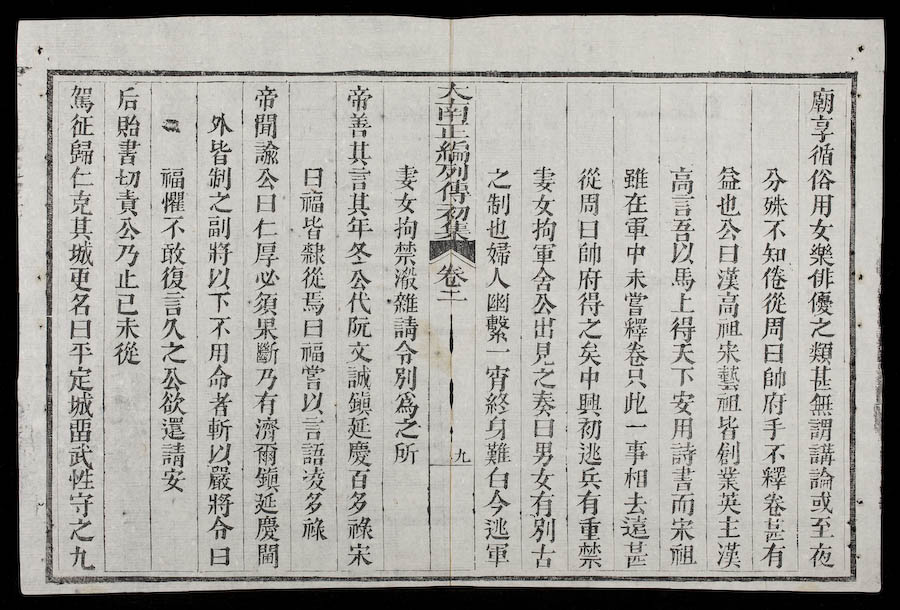 廟享循俗用女樂俳優之類甚無謂講論或至夜
分殊不知倦從周曰帥府手不釋卷甚有
益也公曰漢高祖宋藝祖皆創業英主漢
高言吾以馬上得天下安用詩書而宋祖
雖在軍中未嘗釋卷只此一事相去遠甚
從周曰帥府得之矣中興初逃兵有重禁
妻女拘軍舍公出見之奏曰男女有別古
之制也婦人幽繫一宵終身難白今逃軍
大南正編列傳初集
卷二
九
妻女拘禁殽雜請令別為之所
帝善其言其年冬公代阮文誠鎮延慶百多祿宋
曰福皆隸從焉曰福嘗以言語凌多祿
帝聞諭公曰仁厚必須果斷乃有濟爾鎮延慶閫
外皆制之副將以下不用命者斬以嚴將令曰
福懼不敢復言久之公欲還請安
后貽書切責公乃止己未從
駕征歸仁克其城更名曰平定城畱武性守之九